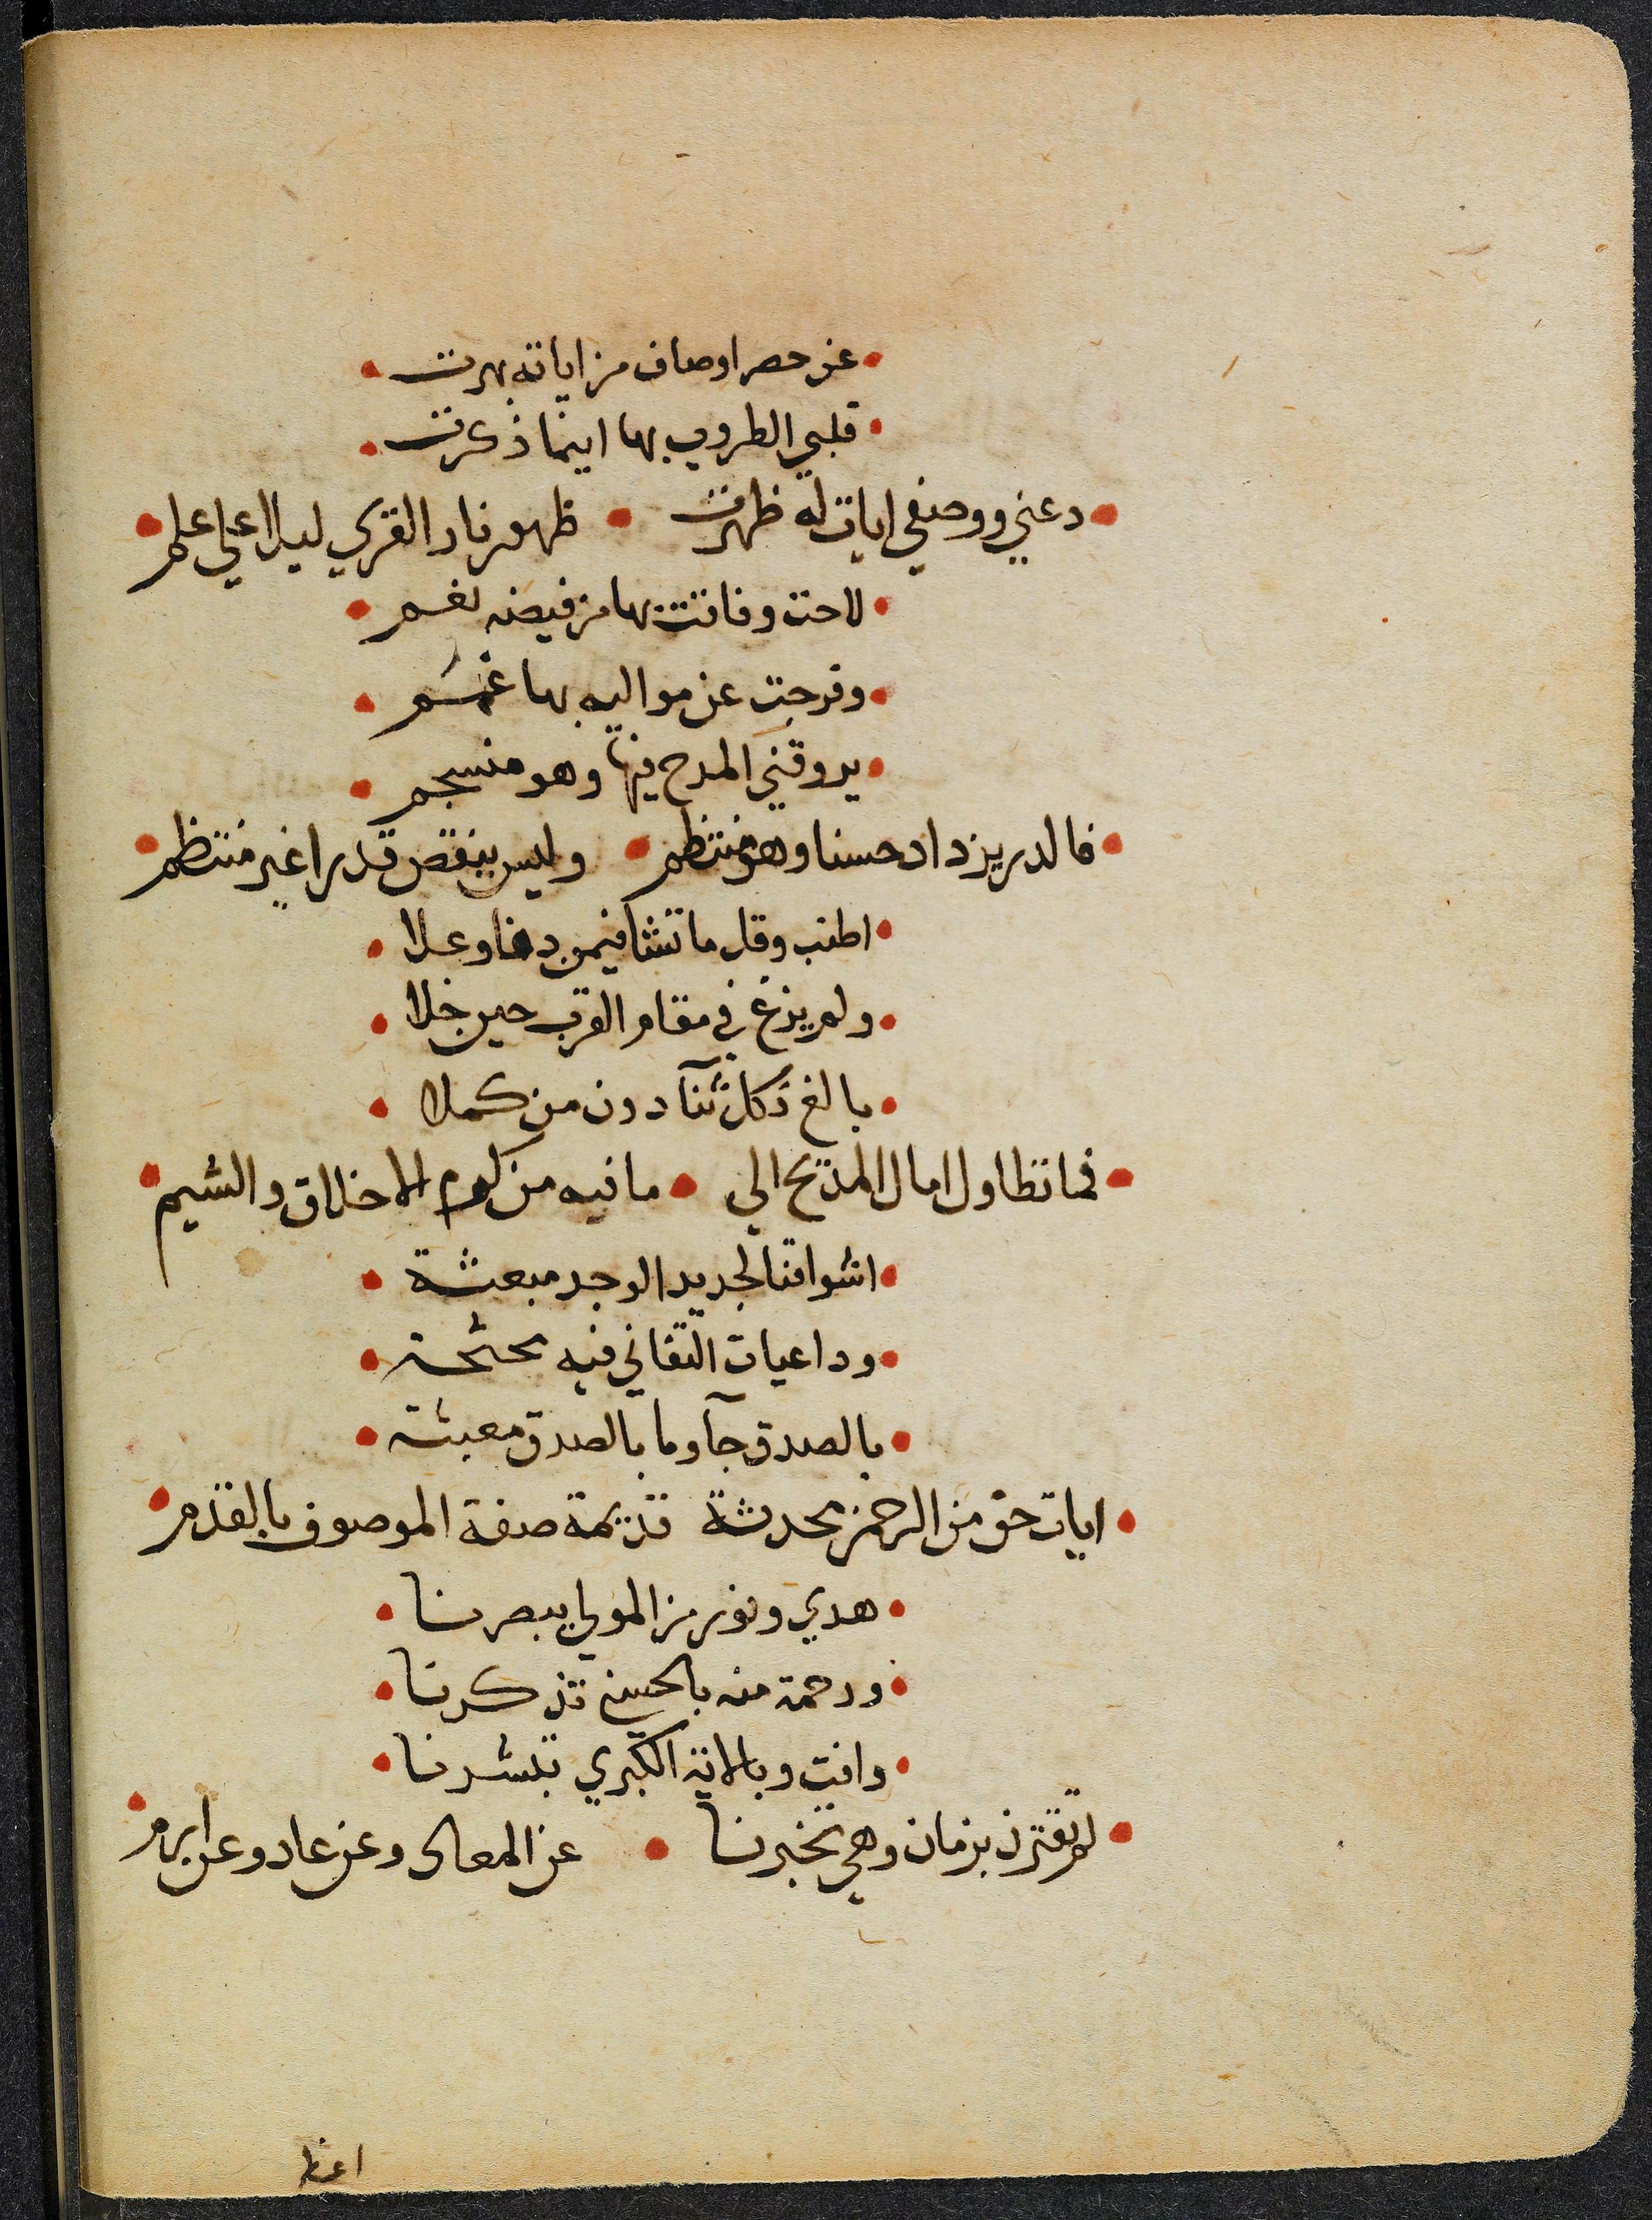 عن حصر اوصاف من اياته بهرت
قلبي الطروب بها اينما ذكرت
دعني ووصفي ايات له ظهرت ظهور نار القري ليلا علي علم
لاحت وفاتت بها من فيضه نغم
وفرجت عن مواليه بها غمم
يروقني المدح فيها وهو منسجم
فالدر يزداد حسنا وهو منتظم وليس ينقص قدرا غير منتظم
اطنب وقل ما تشا فيمن دنا وعلا
ولم يزغ في مقام القرب حين خلا
بالغ فكل ثنآ دون من كملا
فما تطاول امال المديح الي ما فيه من كرم الاخلاق والشيم
اشواقنا لجديد الوجد مبعثة
وداعيات التفاني فيه محثحثة
بالصدق جآ وما بالصدق معبثة
ايات حق من الرحمن محدثة قديمة صفة الموصوف بالقدم
هدي ونور من المولي يبصرنا
ورحمة منه بالحسني تذكرنا
وافت وبالاية الكبري تبشرنا
لم تقترن بزمان وهي تخبرنا عن المعاد وعن عاد وعن ارم
اعظ